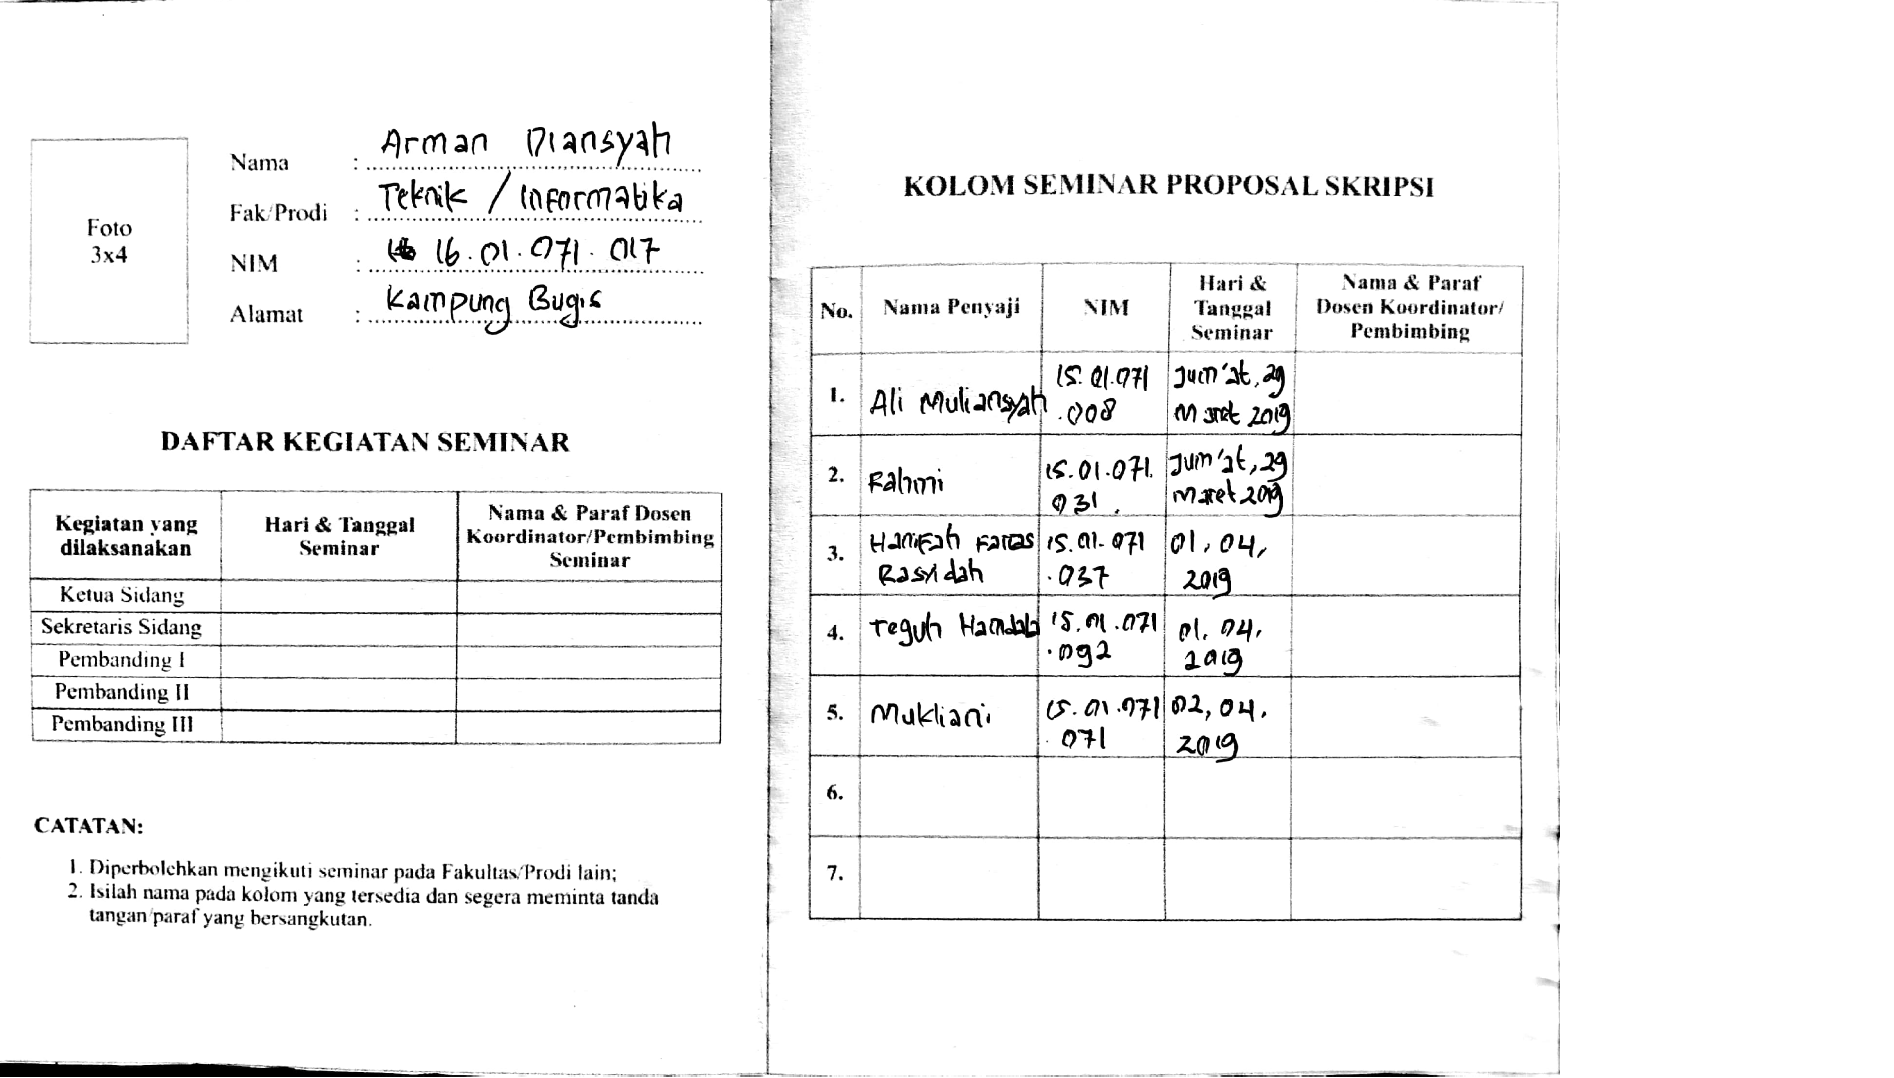 Foto
3x4
Nama : Arman Diansyah
Fak/Prodi : Teknik / Informatika
NIM : 16.01.071.017
Alamat : Kampung Bugis
DAFTAR KEGIATAN SEMINAR
Kegiatan yang dilaksanakan | Hari & Tanggal Seminar | Nama & Paraf Dosen Koordinator/Pembimbing Seminar
Ketua Sidang
Sekretaris Sidang
Pembanding I
Pembanding II
Pembanding III
CATATAN:
1. Diperbolehkan mengikuti seminar pada Fakultas/Prodi lain;
2. Isilah nama pada kolom yang tersedia dan segera meminta tanda
tangan/paraf yang bersangkutan.
KOLOM SEMINAR PROPOSAL SKRIPSI
No. | Nama Penyaji | NIM | Hari & Tanggal Seminar | Nama & Paraf Dosen Koordinator/Pembimbing
1. | Ali Muliansyah | 15.01.071.008 | Jum'at, 29 Maret 2019
2. | Rahmi | 15.01.071.031. | Jum'at, 29 Maret 2019
3. | Hanifah Rasyidah | 15.01.071.037 | 01, 04, 2019
4. | Teguh | 15.01.071.092 | 01, 04, 2019
5. | Mukliani | 15.01.071.071 | 02, 04, 2019
6.
7.